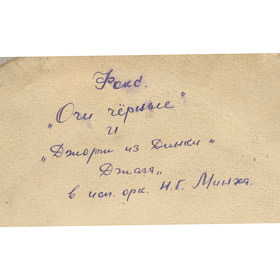 Фокс.
„Очи чёрные"
и
„Джорж из Динки"
Джаза„
в исп. орк. Н.Г. Минха.